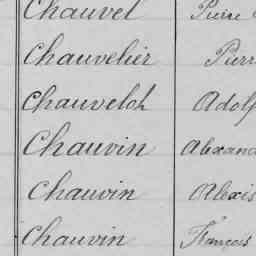 Chauvel Pierre
Chauvelier Pierr
Chauveloh Adolf
Chauvin Alexand
Chauvin Alexis
Chauvin François